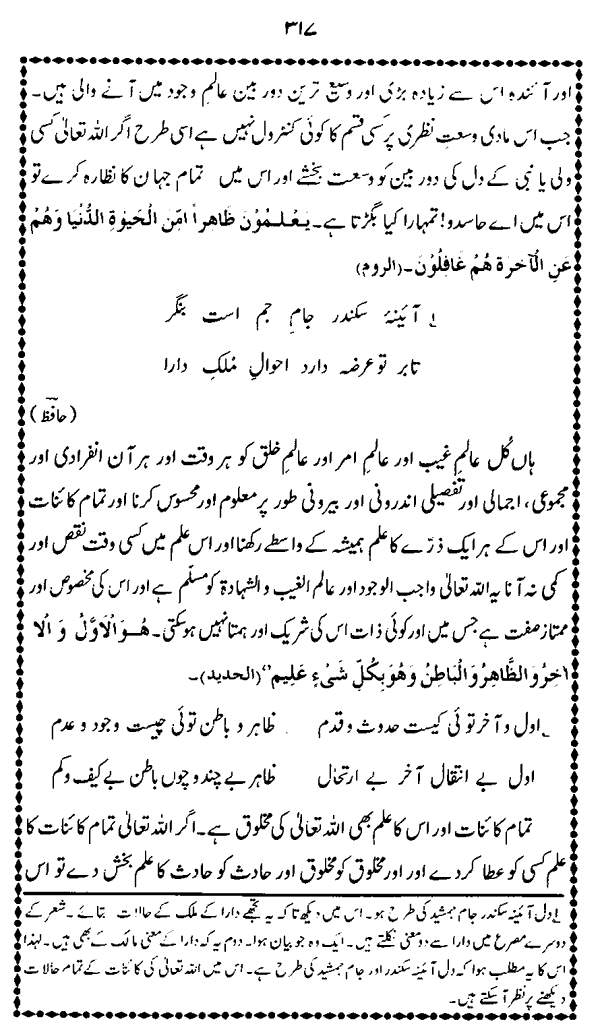 ۳۱۷
اور آئندہ اس سے زیادہ بڑی اور وسیع ترین دور بین عالمِ وجود میں آنے والی ہیں۔
جب اس مادی وسعتِ نظری پر کسی قسم کا کوئی کنٹرول نہیں ہے اسی طرح اگر اللہ تعالیٰ کسی
ولی یا نبی کے دل کی دور بین کو وسعت بخشے اور اس میں تمام جہان کا نظارہ کرے تو
اس میں اے حاسدو! تمہارا کیا بگڑتا ہے۔ یَعْلَمُوْنَ ظَاهِراً مِّنَ الْحَیٰوةِ الدُّنْیَا وَهُمْ
عَنِ الْاٰخِرَةِ هُمْ غَافِلُوْنَ۔ (الروم)
۱ آئینۂ سکندر جامِ جم است بنگر
تابر تو عرضہ دارد احوالِ مُلکِ دارا
(حافظؔ)
ہاں کُل عالمِ غیب اور عالمِ امر اور عالمِ خلق کو ہر وقت اور ہر آن انفرادی اور
مجموعی، اجمالی اور تفصیلی اندرونی اور بیرونی طور پر معلوم اور محسوس کرنا اور تمام کائنات
اور اس کے ہر ایک ذرّے کا علم ہمیشہ کے واسطے رکھنا اور اس علم میں کسی وقت نقص اور
کمی نہ آنا یہ اللہ تعالیٰ واجب الوجود اور عالم الغیب و الشہادۃ کو مسلّم ہے اور اس کی مخصوص اور
ممتاز صفت ہے جس میں اور کوئی ذات اس کی شریک اور ہمتا نہیں ہو سکتی۔ هُوَ الْاَوَّلُ وَ الْاٰ
خِرُ وَ الظَّاهِرُ وَ الْبَاطِنُ وَهُوَ بِکُلِّ شَیْءٍ عَلِیم" (الحدید)۔
۱ اول و آخر توئی کیست حدوث و قدم ظاہر و باطن توئی چیست وجود و عدم
اول بے انتقال آخر بے ارتحال ظاہر بے چند و چوں باطن بے کیف و کم
تمام کائنات اور اس کا علم بھی اللہ تعالیٰ کی مخلوق ہے۔ اگر اللہ تعالیٰ تمام کائنات کا
علم کسی کو عطا کر دے اور اور مخلوق کو مخلوق اور حادث کو حادث کا علم بخش دے تو اس
۱ دل آئینہ سکندر جام جمشید کی طرح ہو۔ اس میں دیکھ تا کہ یہ تجھے دارا کے ملک کے حالات بتائے۔ شعر کے
دوسرے مصرع میں دارا سے دو معنی نکلتے ہیں۔ ایک وہ جو بیان ہوا۔ دوم یہ کہ دارا کے معنی مالک کے بھی ہیں۔ لہٰذا
اس کا یہ مطلب ہوا کہ دل آئینہ سکندر اور جام جمشید کی طرح ہے۔ اس میں اللہ تعالیٰ کی کائنات کے تمام حالات
دیکھنے پر نظر آ سکتے ہیں۔